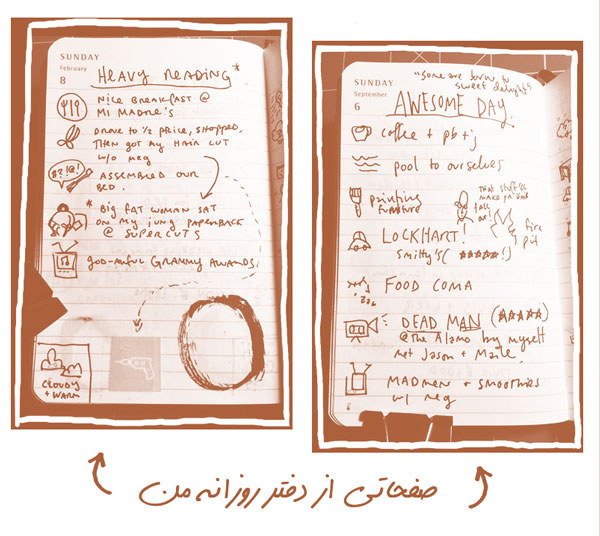 SUNDAY
February
8
HEAVY READING*
NICE BREAKFAST @
MI MADRE'S
DROVE TO ½ PRICE, SHOPPED,
THEN GOT MY HAIR CUT
W/O MEG
ASSEMBLED OUR
BED.
* BIG FAT WOMAN SAT
ON MY JUNG PAPERBACK
@ SUPERCUTS
GOD-AWFUL GRAMMY AWARDS.
CLOUDY
+ WARM
SUNDAY
September
6
"some are born to
sweet delight"
AWESOME DAY.
coffee + pb + j
pool to ourselves
painting
furniture
that stuff'll
make paint
fall
LOCKHART!
Smitty's (★★★★★!)
fire
pit
FOOD COMA
zzz
DEAD MAN (★★★★★)
@ the Alamo by myself
met Jason +
MADMEN + SMOOTHIES
w/ meg
صفحاتی از دفتر روزانه من